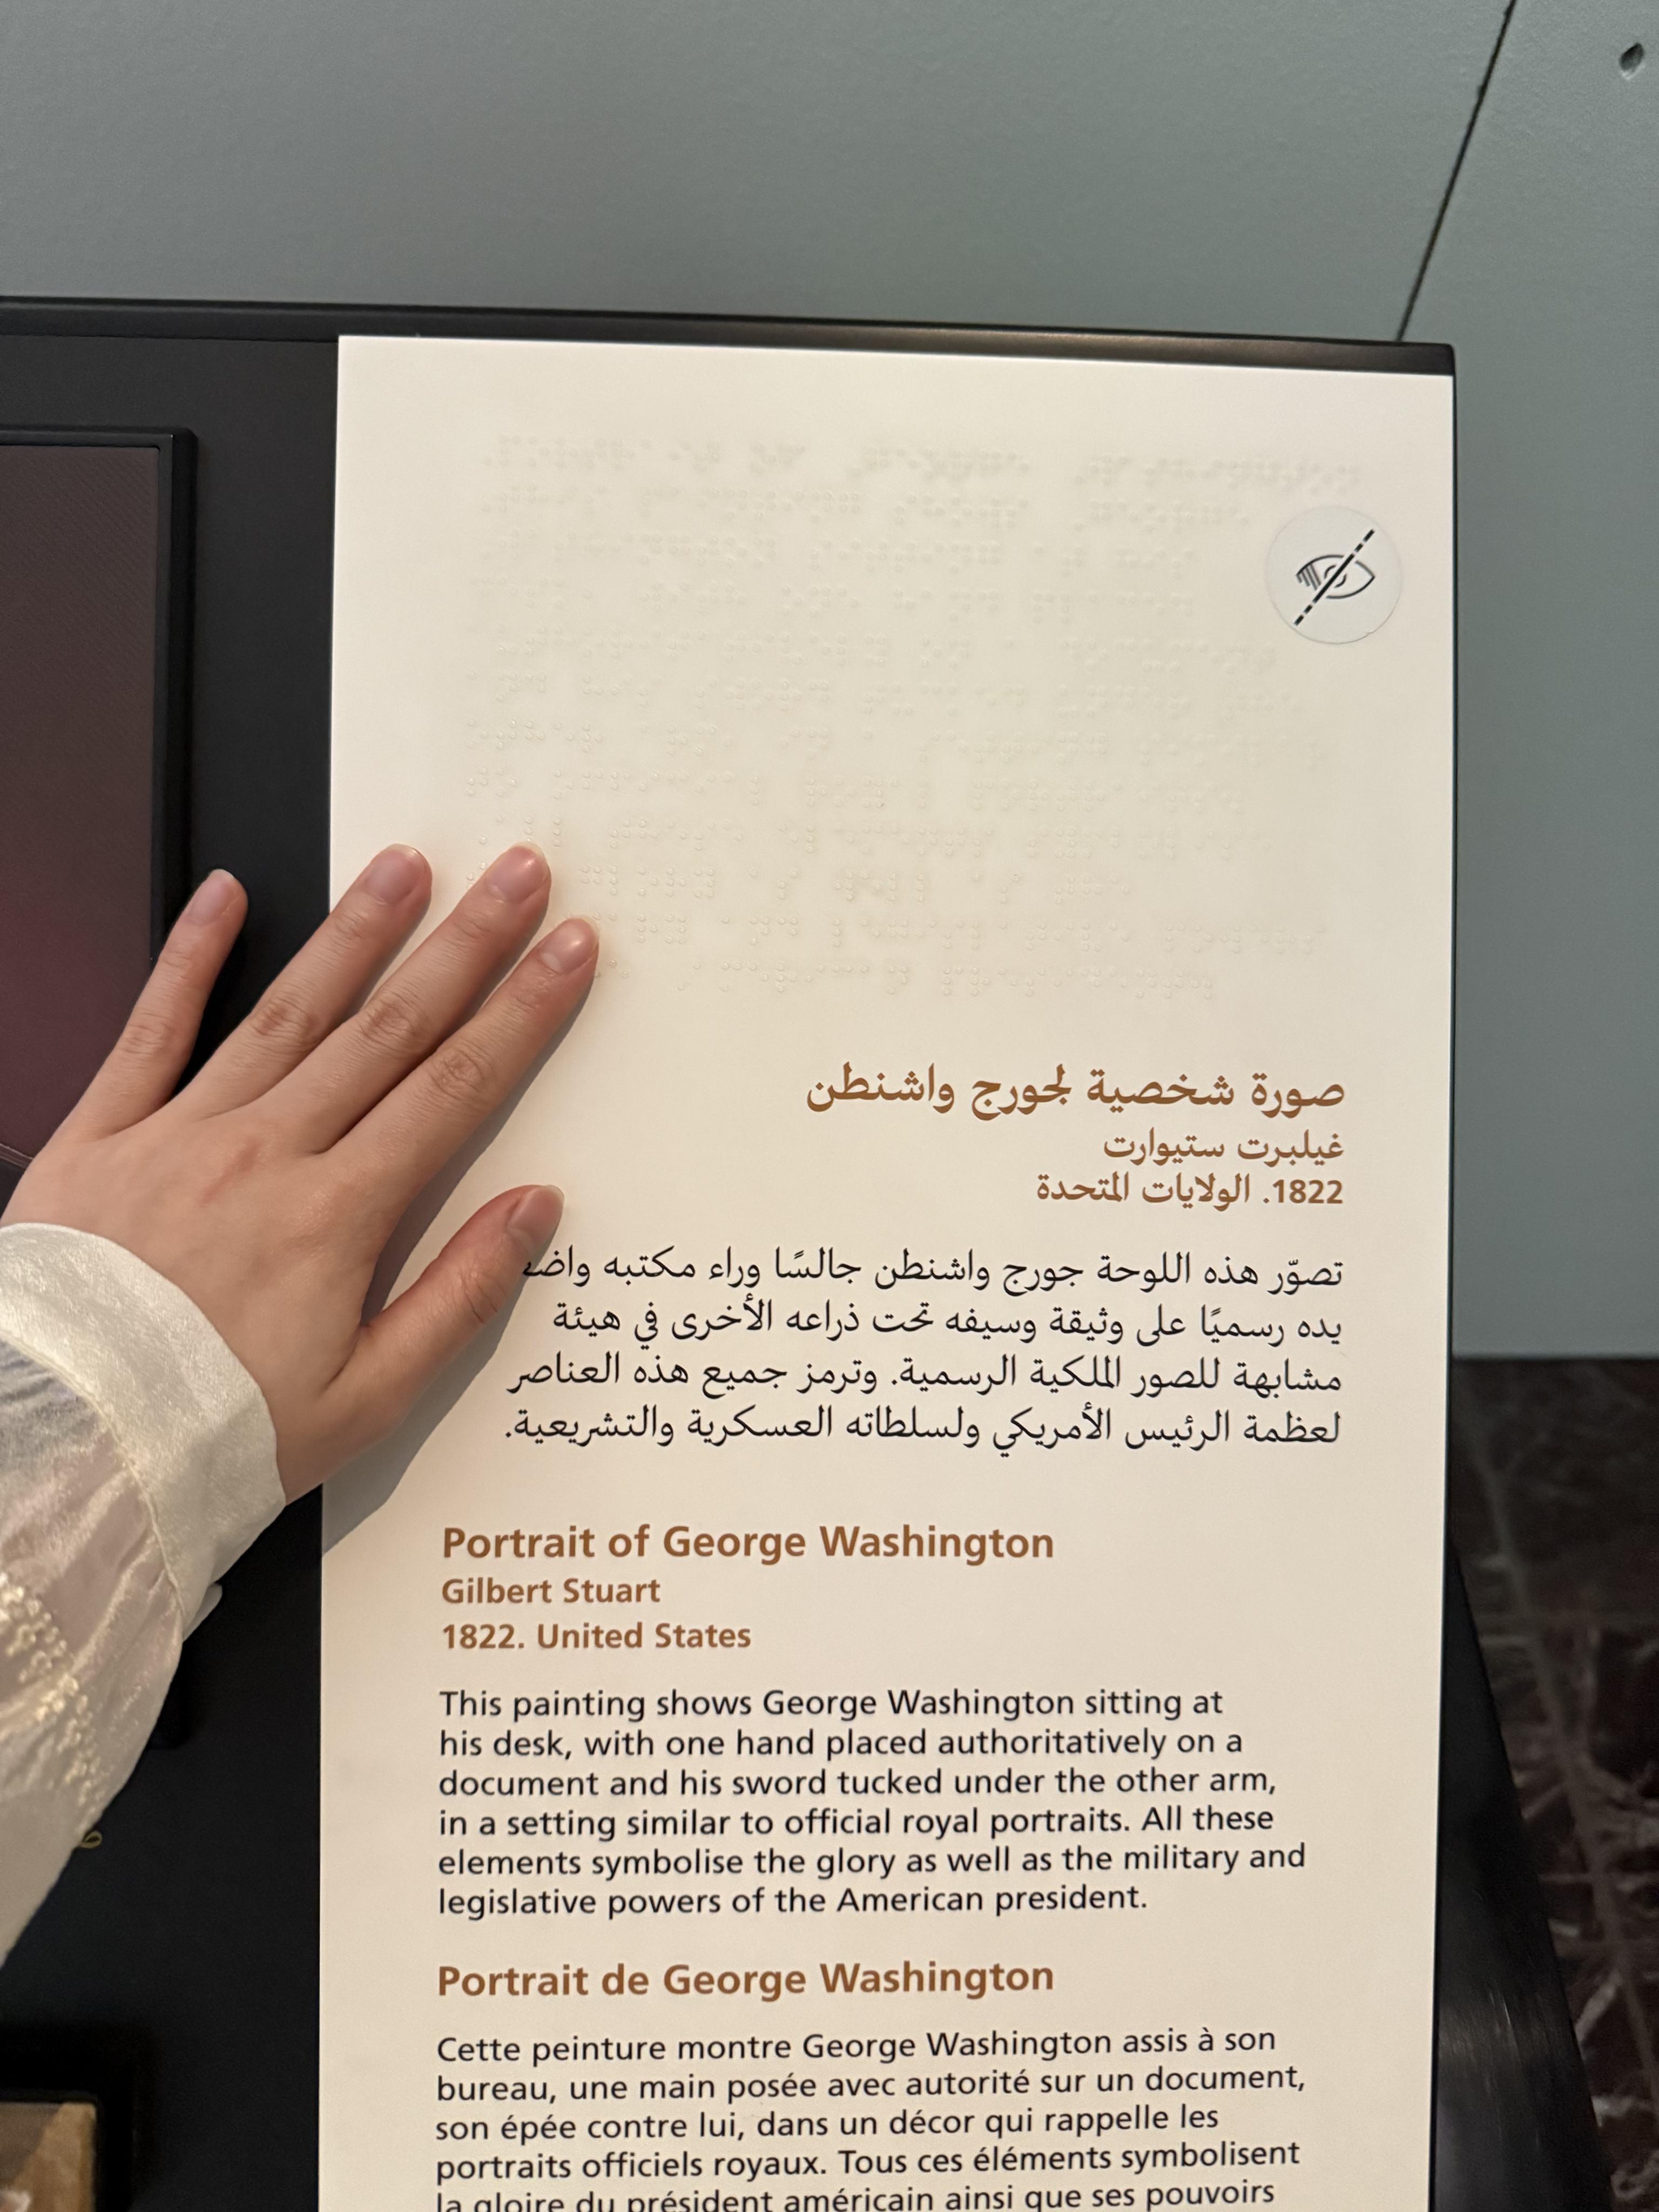 صورة شخصية لجورج واشنطن
غيلبرت ستيوارت
1822. الولايات المتحدة
تصوّر هذه اللوحة جورج واشنطن جالسًا وراء مكتبه
يده رسميًا على وثيقة وسيفه تحت ذراعه الأخرى في هيئة
مشابهة للصور الملكية الرسمية. وترمز جميع هذه العناصر
لعظمة الرئيس الأمريكي ولسلطاته العسكرية والتشريعية.
Portrait of George Washington
Gilbert Stuart
1822. United States
This painting shows George Washington sitting at
his desk, with one hand placed authoritatively on a
document and his sword tucked under the other arm,
in a setting similar to official royal portraits. All these
elements symbolise the glory as well as the military and
legislative powers of the American president.
Portrait de George Washington
Cette peinture montre George Washington assis à son
bureau, une main posée avec autorité sur un document,
son épée contre lui, dans un décor qui rappelle les
portraits officiels royaux. Tous ces éléments symbolisent
la gloire du président américain ainsi que ses pouvoirs